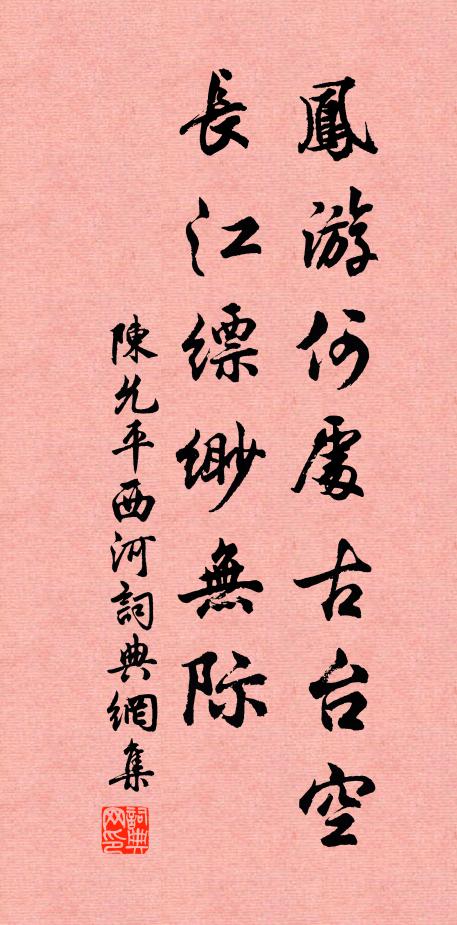 鳳游何處古台空
長江縹緲無际
陳允平西河詞典網集
詞典
网印